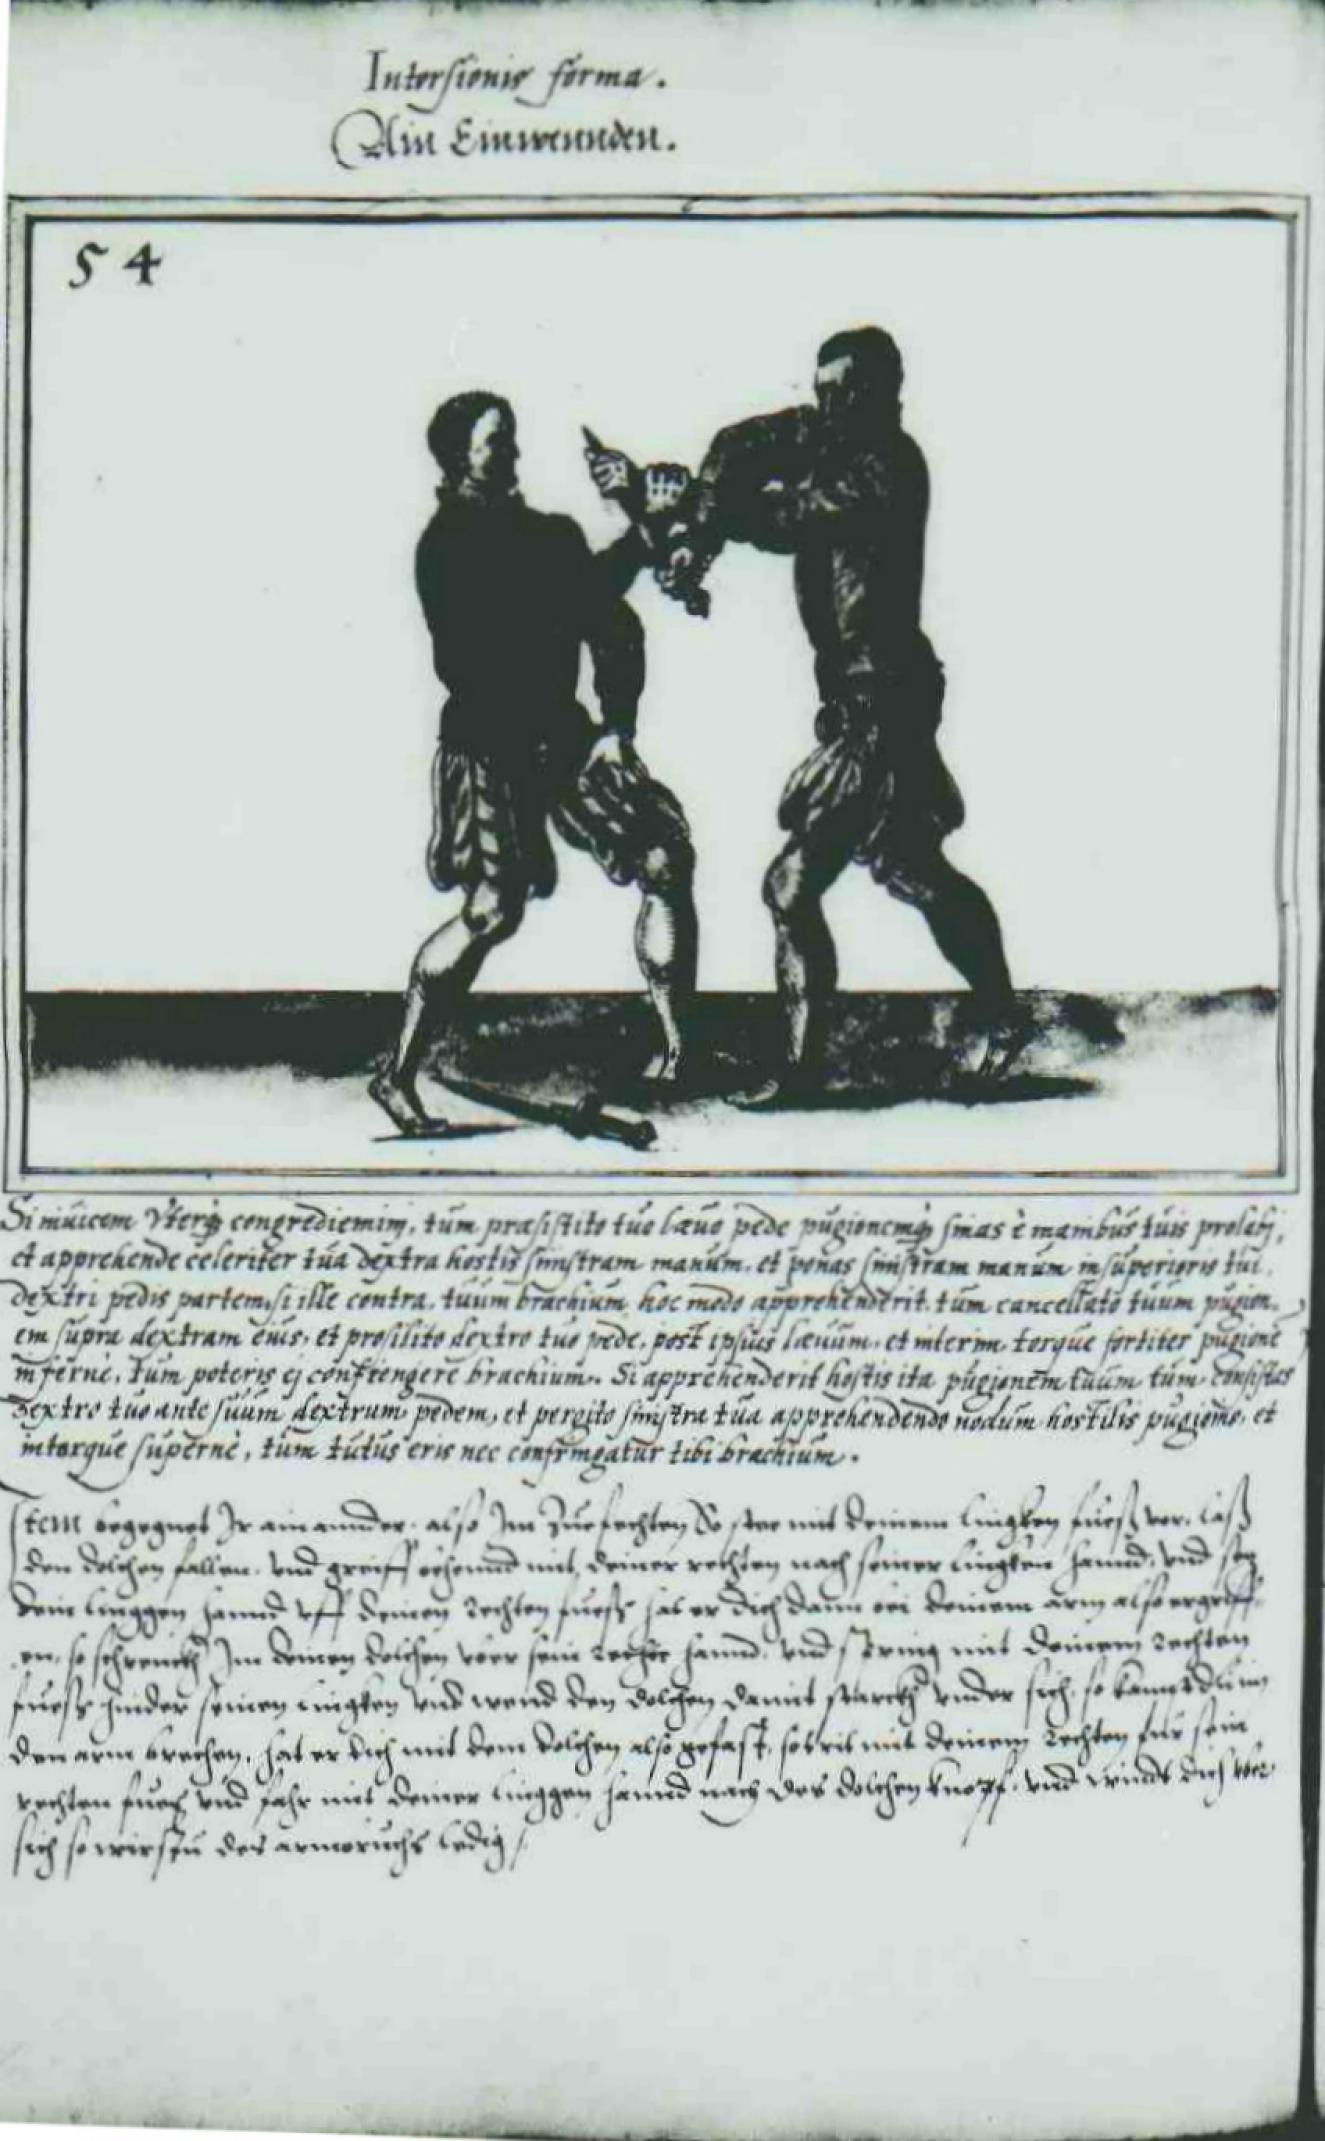 Intorsionis forma.
Ain Einwennden.
54
Si invicem uterq congrediemini, tum præsistito tuo lævo pede pugionemq sinas è manibus tuis prolabj,
et apprehende celeriter tua dextra hostis sinistram manum, et ponas sinistram manum in superioris tui
dextri pedis partem, si ille contra, tuum brachium hoc modo apprehenderit, tum cancellato tuum pugion,
em supra dextram eius, et prosilito dextro tuo pede, post ipsius lævum, et interim torque fortiter pugionē
infernè, tum poteris ej confrengere brachium. Si apprehenderit hostis ita pugionem tuum tum consistas
dextro tuo ante suum dextrum pedem, et pergito sinistra tua apprehendendo nodum hostilis pugionis, et
intorque supernè, tum tutus eris nec confringatur tibi brachium.
Item begegnet Ir ainannder also Im Zuefechten So stee mit deinem lingken fueß vor, laß
den dolchen fallen, vnd greiff behennd mit deiner rechten nach seiner lingken hannd, vnd setz
dein linggen hannd vff deinen rechten fuess hat er dich dann bei deinem arm also ergriff,
en, so schrenckh Im deinen dolchen vber sein rechte hannd, vnd spring mit deinem rechten
fuess hinder seinen lingken vnd wend den dolchen damit starckh vnder sich, so kanstu Im
den arm brechen, hat er dich mit dem dolchen also gefast, so trit mit deinem rechten für sein
rechten fueß vnd fahr mit deiner linggen hannd nach des dolchen knopff, vnd winde dich vber
sich so wirstu des armbruchs ledig